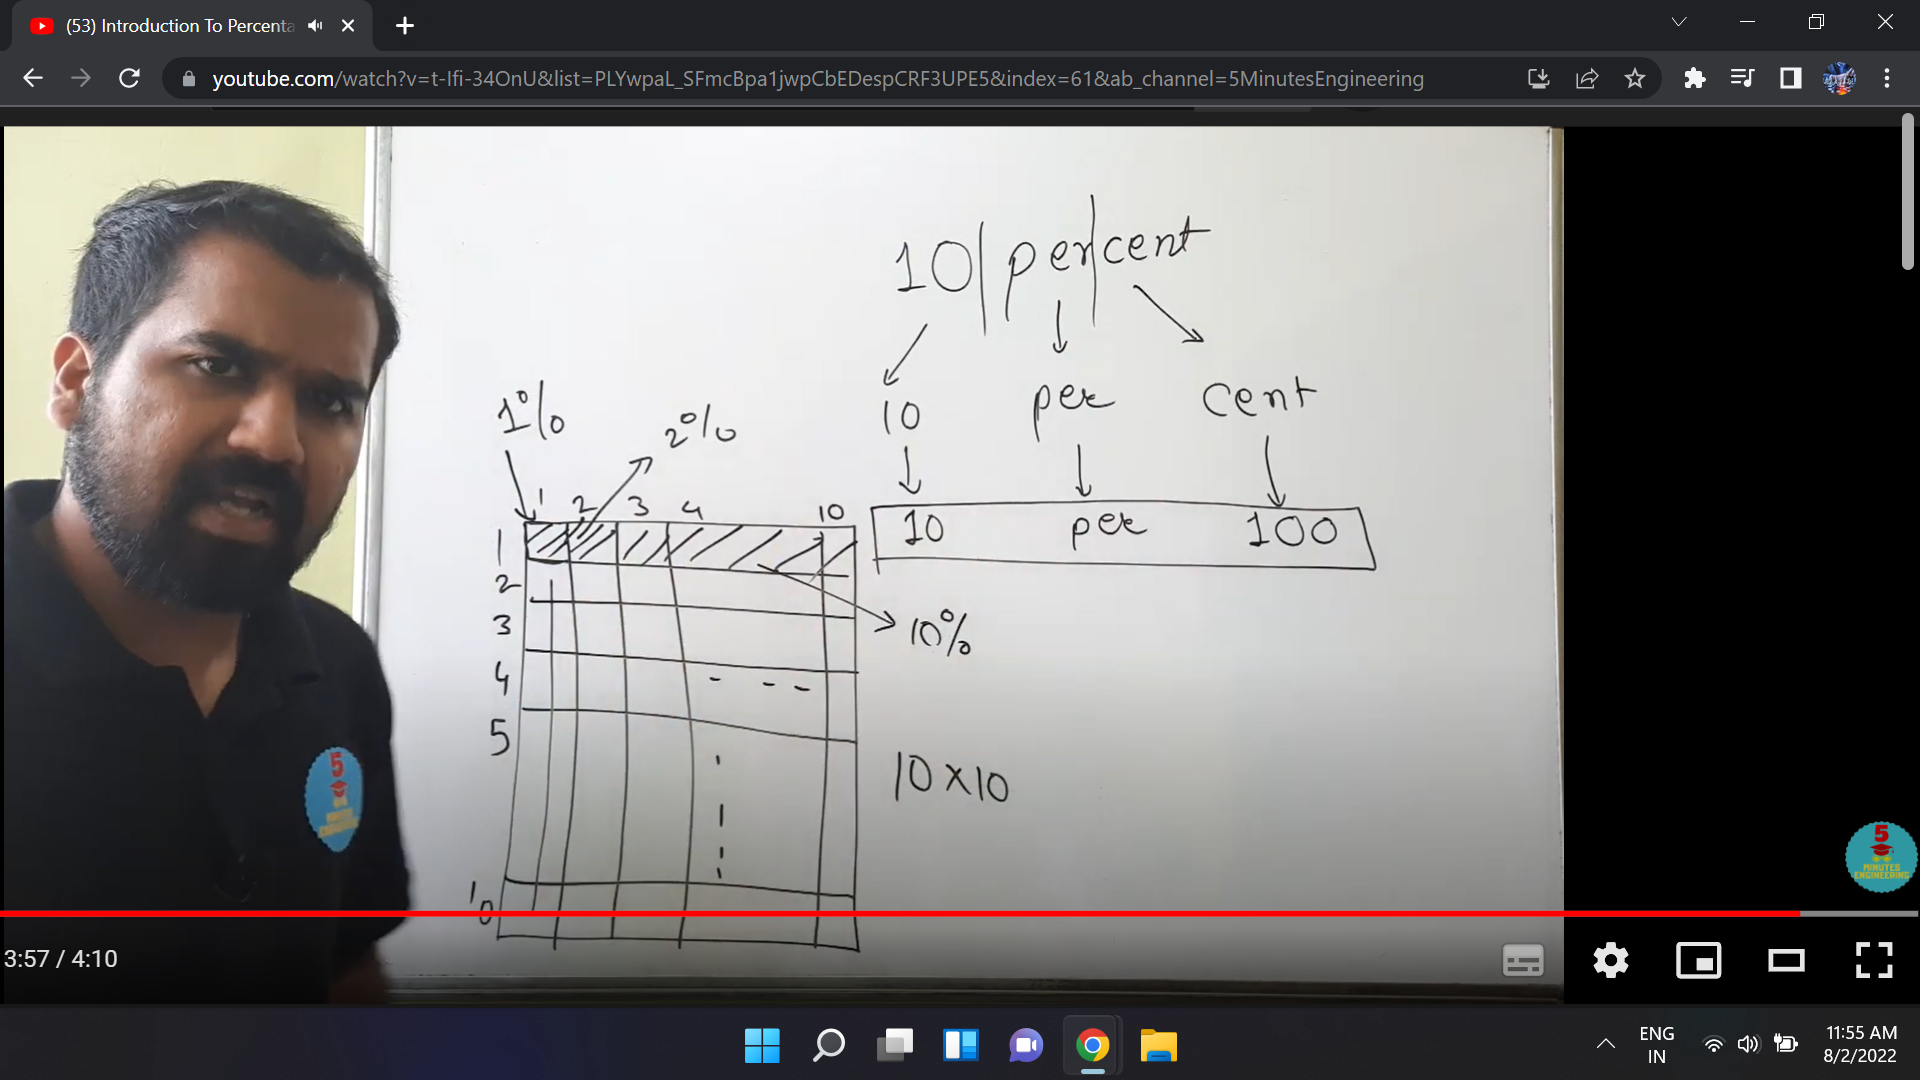 (53) Introduction To Percenta
youtube.com/watch?v=t-Ifi-34OnU&list=PLYwpaL_SFmcBpa1jwpCbEDespCRF3UPE5&index=61&ab_channel=5MinutesEngineering
10 | per | cent
10 per cent
10 per 100
1%
2%
1 2 3 4 10
1
2
3
4
5
10
10%
- - -
10 x 10
5
MINUTES
ENGINEERING
5
MINUTES
ENGINEERING
3:57 / 4:10
ENG
IN
11:55 AM
8/2/2022